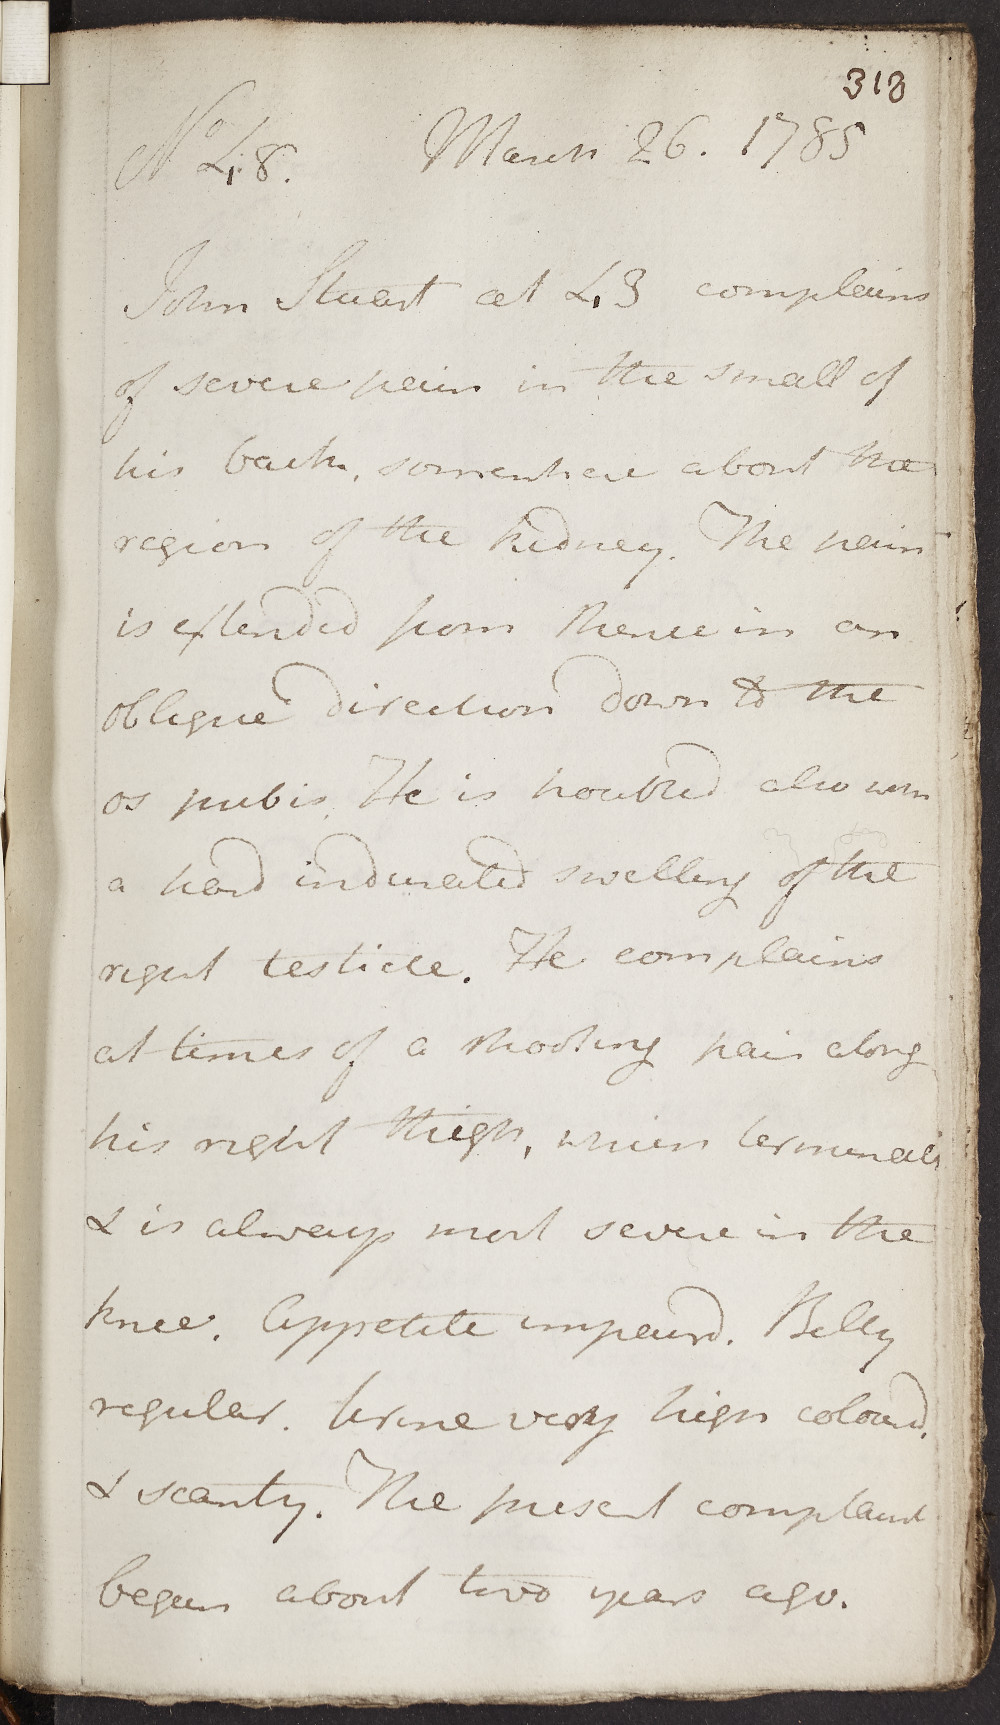 313
No 48. March 26. 1785
John Stuart aet 43 complains
of severe pain in the small of
his back, somewhere about the
region of the kidney. The pain
is extended from thence in an
oblique direction down to the
os pubis. He is troubled also with
a hard indurated swelling of the
right testicle. He complains
at times of a shooting pain along
his right thigh, which terminates
& is always most severe in the
knee. Appetite impaird. Belly
regular. Urine very high colourd,
& scanty. The present complaint
began about two years ago.